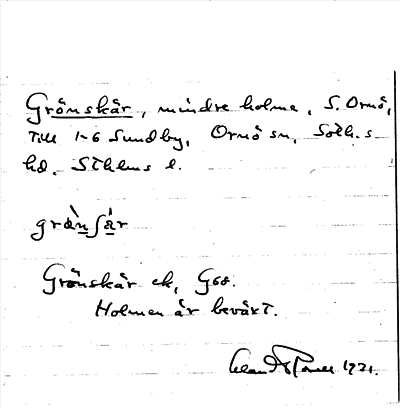 Grönskär, mindre holme, S. Ornö,
till 1-6 Sundby, Ornö sn, Soth.s
hd. Sthlms l.
grȁnʃár
Grönskär ek, G68.
Holmen är beväxt.
1921.